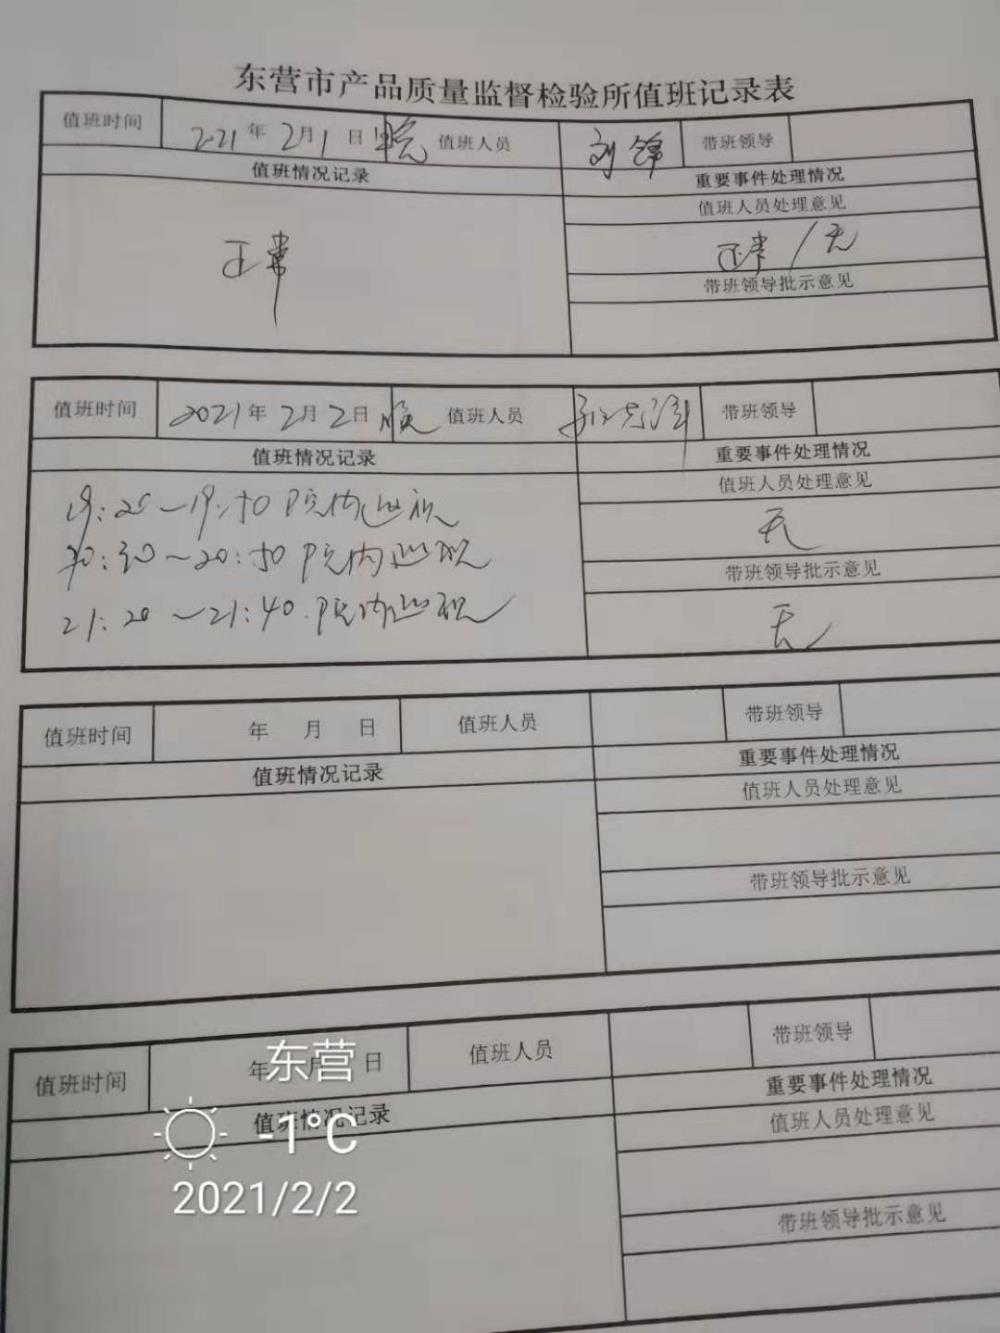 东营市产品质量监督检验所值班记录表
值班时间 2021年2月1日晚 值班人员 刘锋 带班领导
值班情况记录 重要事件处理情况
值班人员处理意见
正常 正常/无
带班领导批示意见
值班时间 2021年2月2日晚 值班人员 带班领导
值班情况记录 重要事件处理情况
值班人员处理意见
19:20～19:50 院内巡视
无
20:30～20:50 院内巡视
带班领导批示意见
21:20～21:40 院内巡视
无
值班时间 年 月 日 值班人员 带班领导
值班情况记录 重要事件处理情况
值班人员处理意见
带班领导批示意见
值班时间 年 月 日 值班人员 带班领导
东营
值班情况记录 重要事件处理情况
-1°C
值班人员处理意见
2021/2/2
带班领导批示意见